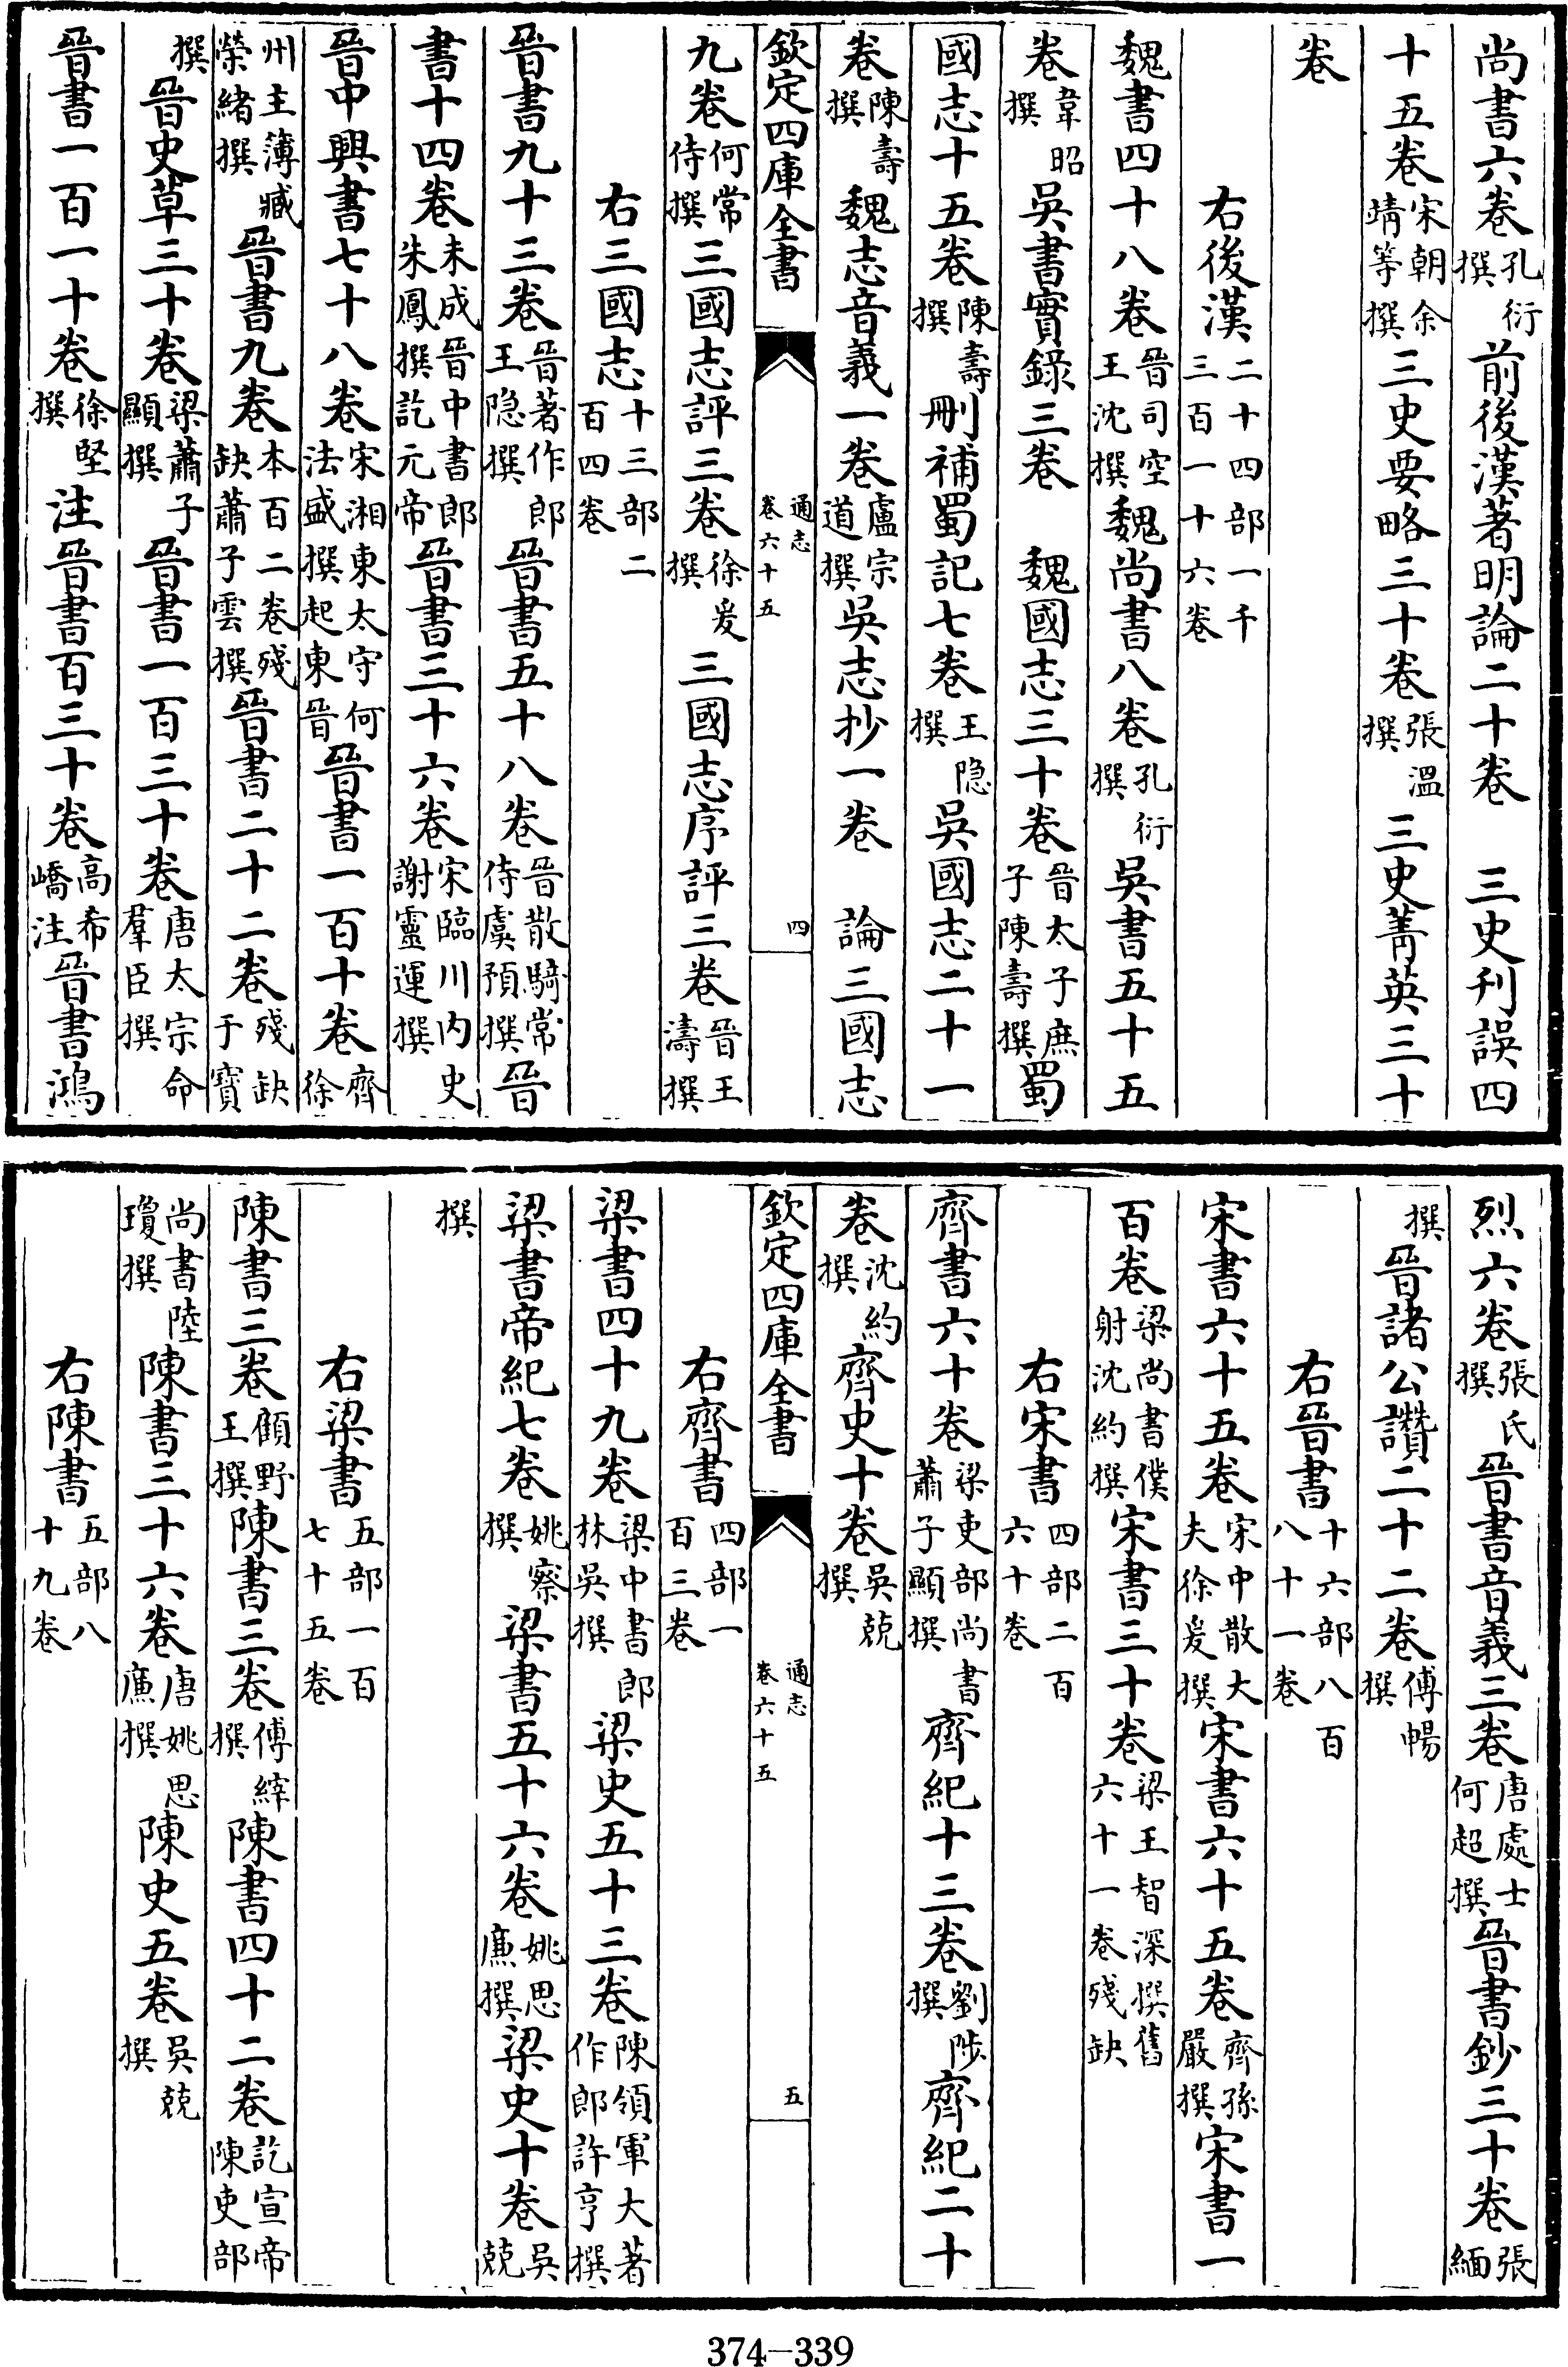 尚書六卷孔衍撰前後漢著明論二十卷　三史刋誤四
十五卷宋朝余靖等撰三史要略三十卷張溫撰三史菁英三十
卷
右後漢二十四部一千三百一十六卷
魏書四十八卷晉司空王沈撰魏尚書八卷孔衍撰吳書五十五
卷韋昭撰吳書實錄三卷　魏國志三十卷晉太子庶子陳壽撰蜀
國志十五卷陳壽撰刪補蜀記七卷王隐撰吳國志二十一
卷陳壽撰魏志音義一卷盧宗道撰吳志抄一卷　論三國志
欽定四庫全書　通志卷六十五　四
九卷何常侍撰三國志評三卷徐爰撰三國志序評三卷晉王濤撰
右三國志十三部二百四卷
晉書九十三卷晉著作郎王隐撰晉書五十八卷晉散騎常侍虞預撰晉
書十四卷未成晉中書郎朱鳳撰訖元帝晉書三十六卷宋臨川内史謝靈運撰
晉中興書七十八卷宋湘東太守何法盛撰起東晉晉書一百十卷齊徐
州主簿臧榮緒撰晉書九卷本百二卷殘缺蕭子雲撰晉書二十二卷殘缺于寶
撰晉史草三十卷梁蕭子顯撰晉書一百三十卷唐太宗命羣臣撰
晉書一百一十卷徐堅撰注晉書百三十卷高希嶠注晉書鴻
烈六卷張氏撰晉書音義三卷唐處士何超撰晉書鈔三十卷張緬
撰晉諸公讚二十二卷傅暢撰
右晉書十六部八百八十一卷
宋書六十五卷宋中散大夫徐爰撰宋書六十五卷齊孫嚴撰宋書一
百卷梁尚書僕射沈約撰宋書三十卷梁王智深撰舊六十一卷殘缺
右宋書四部二百六十卷
齊書六十卷梁吏部尚書蕭子顯撰齊紀十三卷劉陟撰齊紀二十
卷沈約撰齊史十卷吳兢撰
欽定四庫全書　通志卷六十五　五
右齊書四部一百三卷
梁書四十九卷梁中書郎林吳撰梁史五十三卷陳領軍大著作郎許亨撰
梁書帝紀七卷姚察撰梁書五十六卷姚思㢘撰梁史十卷吳兢
撰
右梁書五部一百七十五卷
陳書三卷顧野王撰陳書三卷傅縡撰陳書四十二卷訖宣帝陳吏部
尚書陸瓊撰陳書三十六卷唐姚思㢘撰陳史五卷吳兢撰
右陳書五部八十九卷
374-339